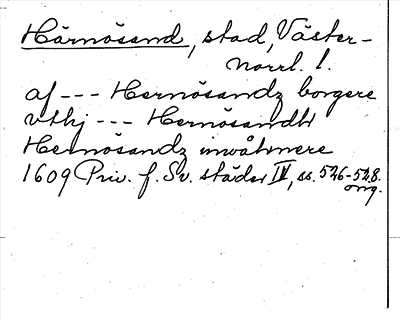 Härnösand, stad, Väster-
norrl. l.
af --- Hernösandz borgere
vthj --- Hernösandh
Hernösandz inwånere
1609 Priv. f. Sv. städer IV, ss. 526-528.
orig.